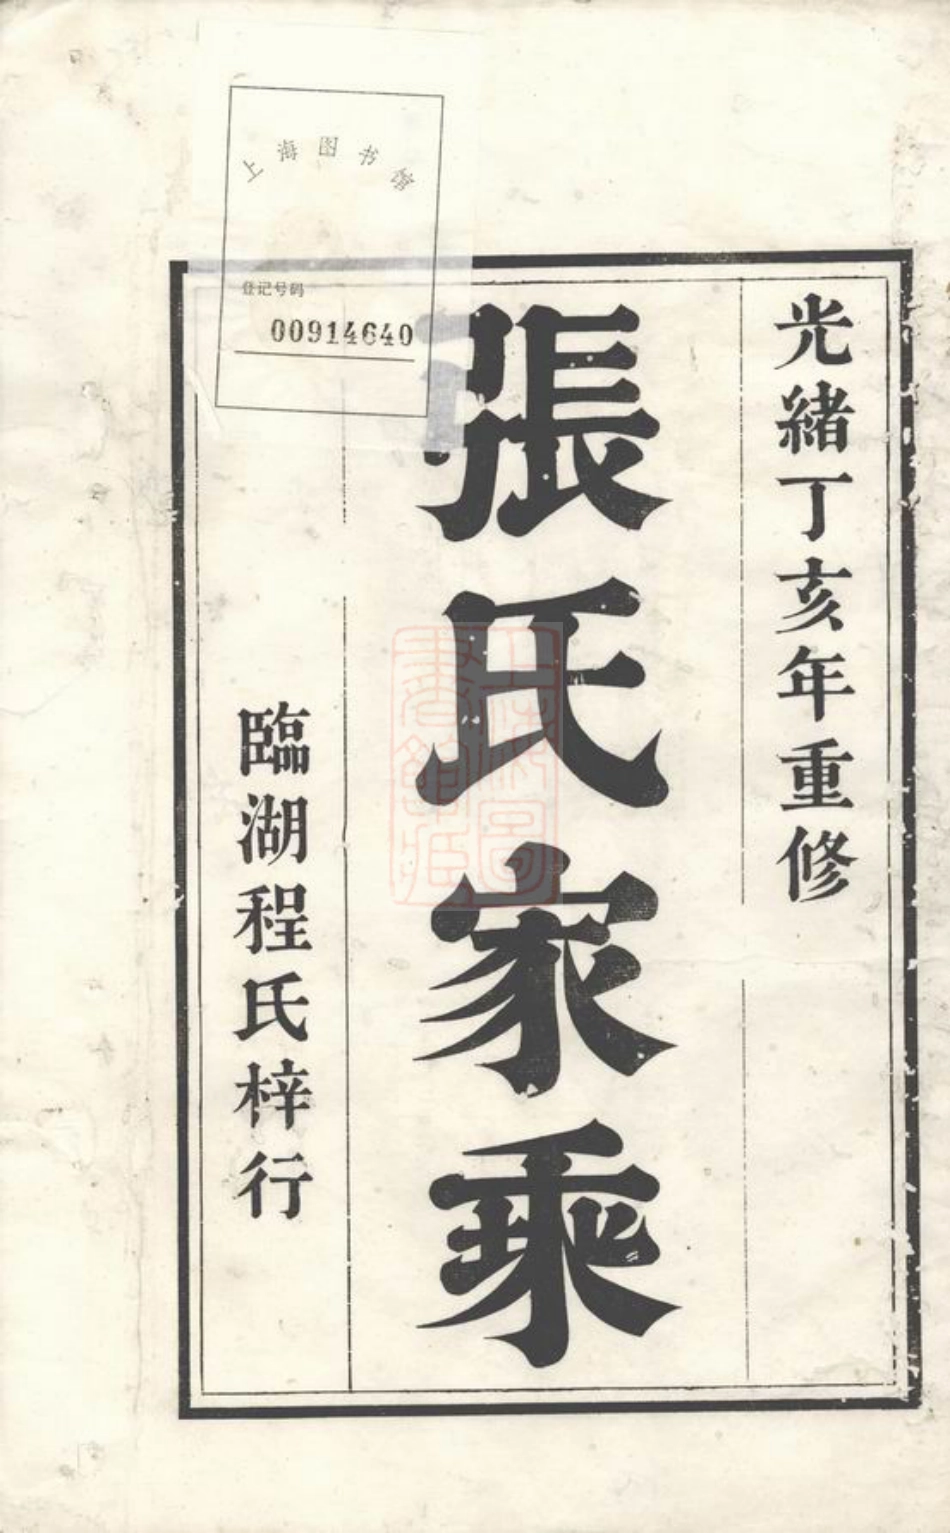 上海图书馆
登记号码
00914640
光緒丁亥年重修
張氏家乘
臨湖程氏梓行
上海圖書館藏